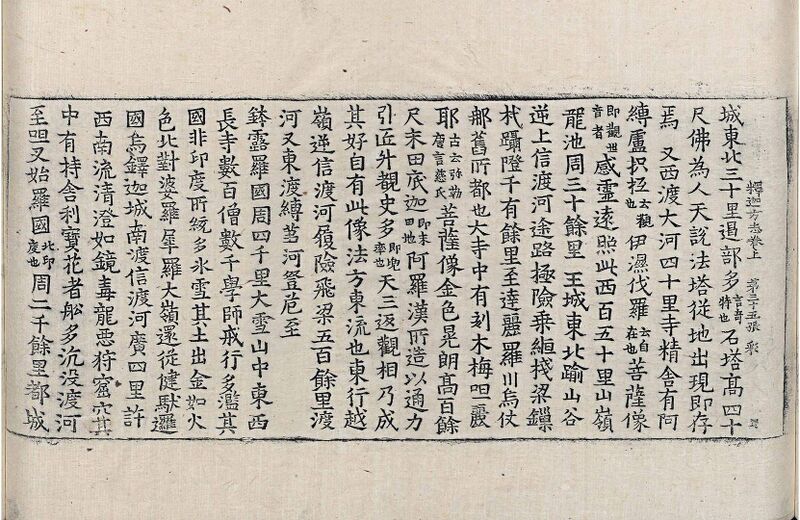 城東北三十里遏部多言奇特也石塔高四十
釋迦方志卷上 第二十五張 彩
尺佛為人天說法塔從地出現即存
焉又西渡大河四十里寺精舍有阿
縛盧抧㐌云觀也伊濕伐羅云自在也菩薩像
即觀世音者感靈遠照此西百五十里山嶺
龍池周三十餘里王城東北踰山谷
逆上信渡河途路極險乗緪棧梁鏁
杙躡隥千有餘里至達麗羅川烏仗
那舊所都也大寺中有刻木梅呾麗
耶古云弥勒唐言慈氏菩薩像金色晃朗高百餘
尺末田底迦即末田地阿羅漢所造以通力
引匠升覩史多即兜率也天三返觀相乃成
其好自有此像法方東流也東行越
嶺逆信渡河履險飛梁五百餘里渡
河又東渡縛芻河登苊至
鉢露羅國周四千里大雪山中東西
長寺數百僧數千學師戒行多濫其
國非印度所統多氷雪其土出金如火
色北對婆羅犀羅大嶺還從健馱邏
國烏鐸迦城南渡信渡河廣四里許
西南流清澄如鏡毒龍惡狩窟穴其
中有持舍利寶花者舩多沉没渡河
至呾叉始羅國北印度也周二千餘里都城